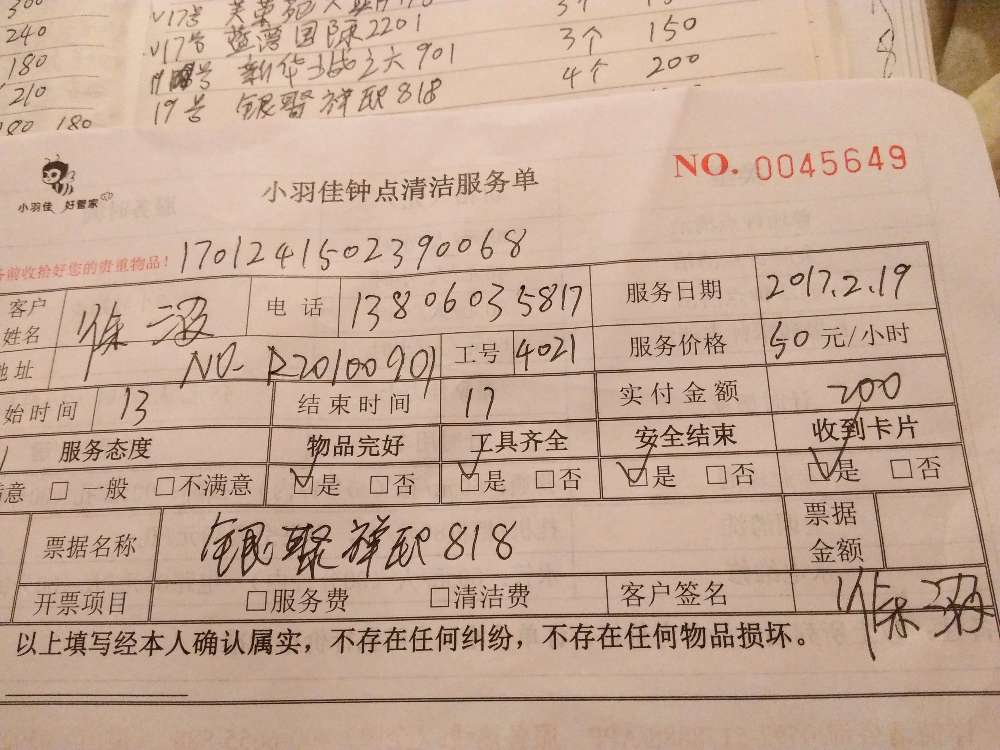 300
240
180
210
180 180
√17号 蓝湾国际2201 3个 150
新华 之大901 4个 200
19号 银聚祥邸818
小羽佳 好管家
小羽佳钟点清洁服务单
NO. 0045649
务前收拾好您的贵重物品! 1701241502390068
客户姓名 徐 电话 13806035817 服务日期 2017.2.19
地址 NO- R20100901 工号 4021 服务价格 50 元/小时
始时间 13 结束时间 17 实付金额 200
服务态度 物品完好 工具齐全 安全结束 收到卡片
满意 □ 一般 □不满意 ☑是 □否 ☑是 □否 ☑是 □否 ☑是 □否
票据名称 银聚祥邸818 票据金额
开票项目 □服务费 □清洁费 客户签名 徐
以上填写经本人确认属实，不存在任何纠纷，不存在任何物品损坏。